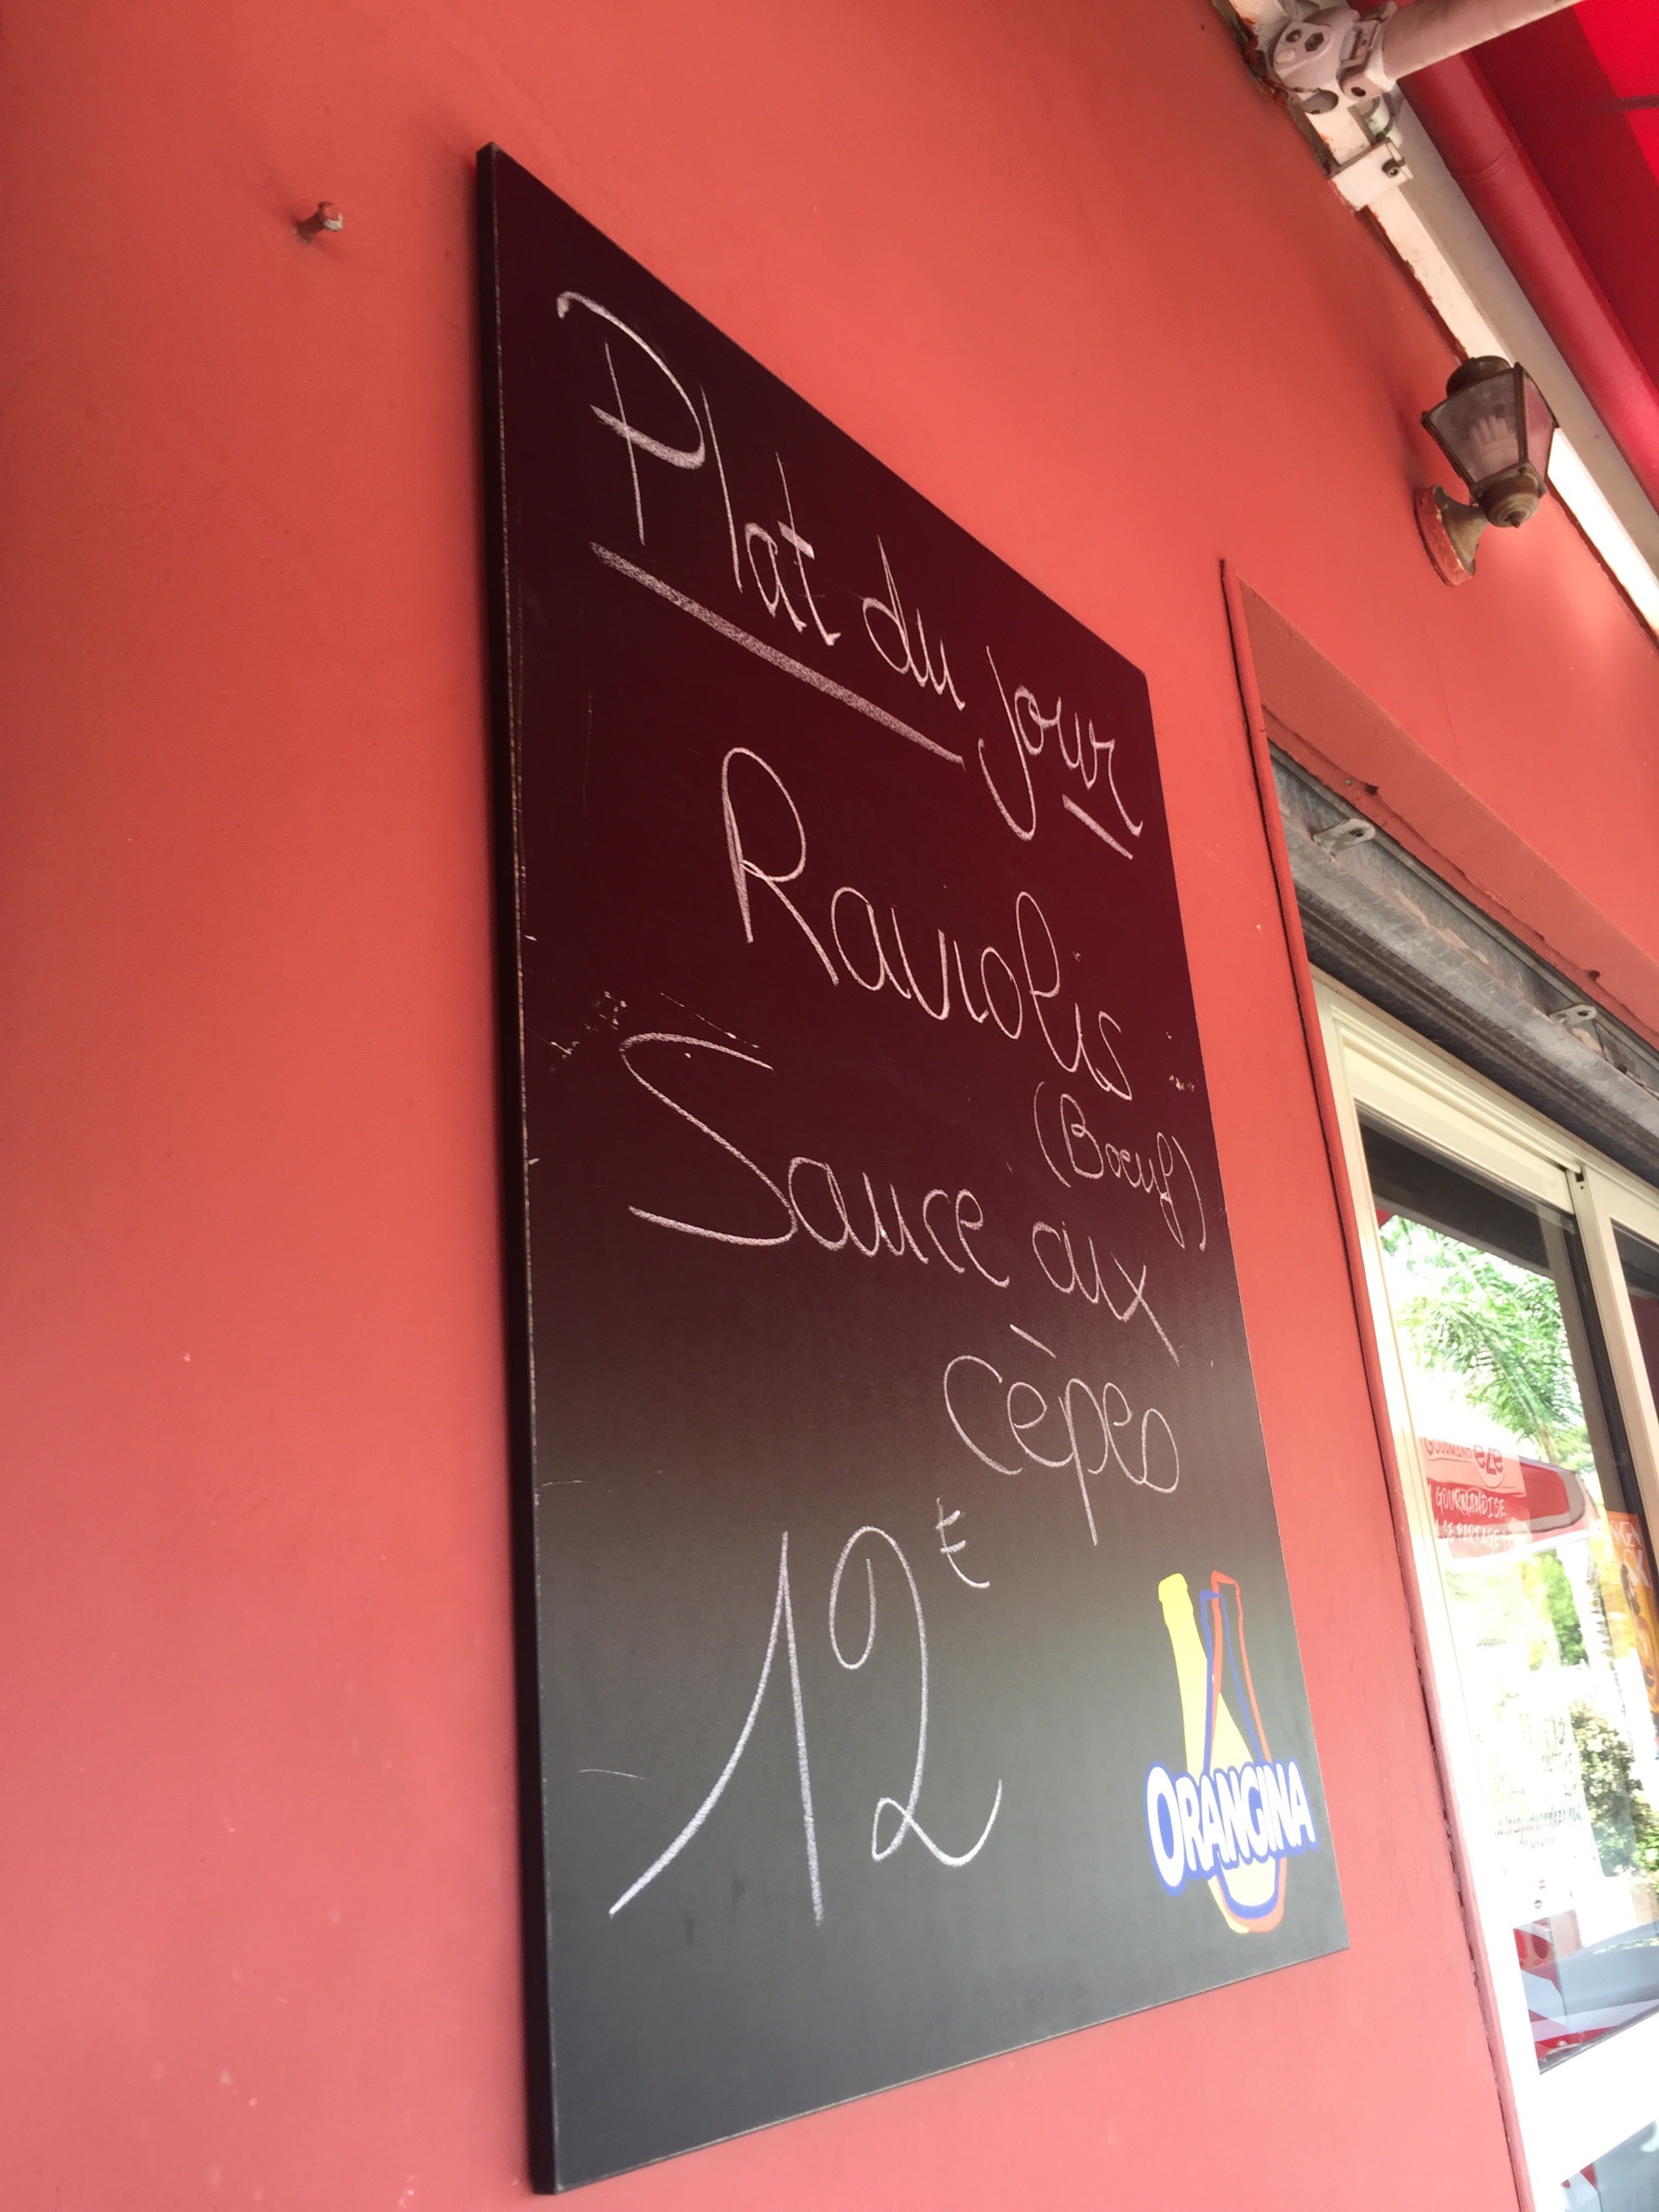 Plat du jour
Raviolis
(Boeuf)
Sauce aux
cèpes
12€
ORANGINA
GOURMAND eze
GOURMANDISE
SE PARTAGE